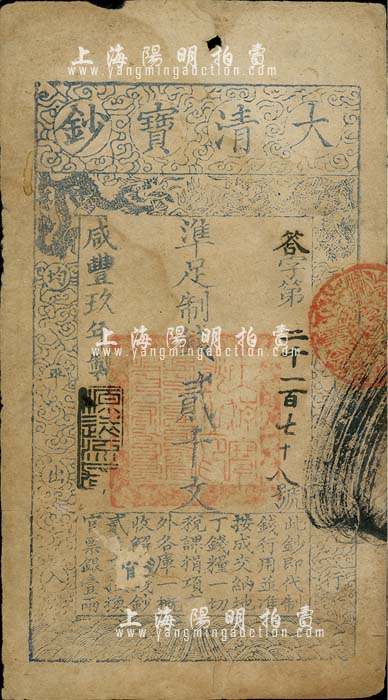 上海陽明拍賣
www.yangmingauction.com
大清寶鈔
答字第二千一百七十八號
準足制錢貳千文
咸豐玖年製
上海陽明拍賣
www.yangmingauction.com
此鈔即代制
錢行用並準
按成交納地
丁錢糧一切
稅課捐項
外各庫一概
收解
官票銀壹兩
均平出入
上海陽明拍賣
www.yangmingauction.com